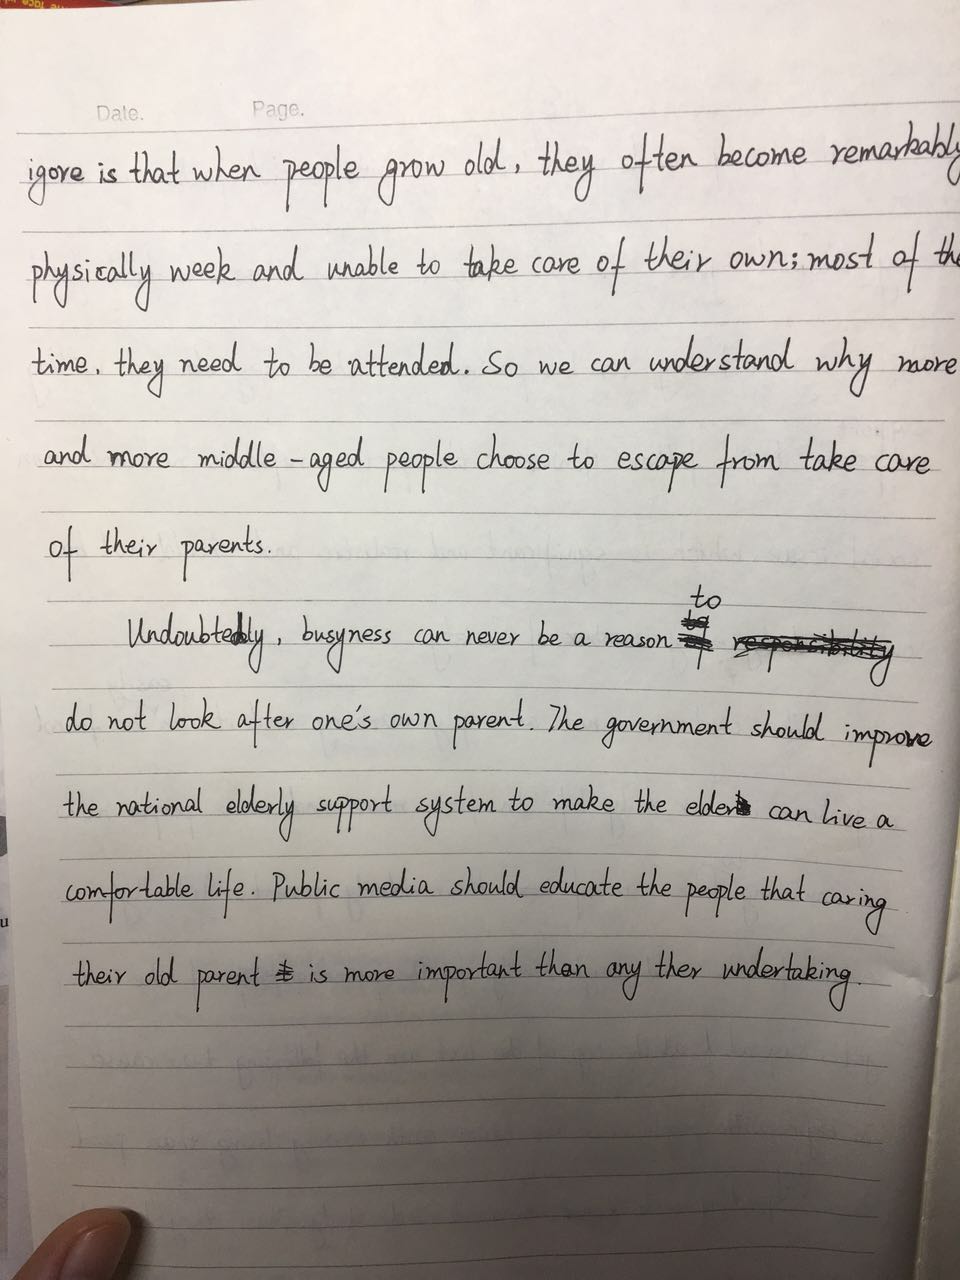 Date. Page.
igore is that when people grow old, they often become remarkably
physically week and unable to take care of their own; most of the
time, they need to be attended. So we can understand why more
and more middle-aged people choose to escape from take care
of their parents.
to
Undoubtedly, busyness can never be a reason
do not look after one's own parent. The government should improve
the national elderly support system to make the elder can live a
comfortable life. Public media should educate the people that caring
their old parent is more important than any ther undertaking.
u